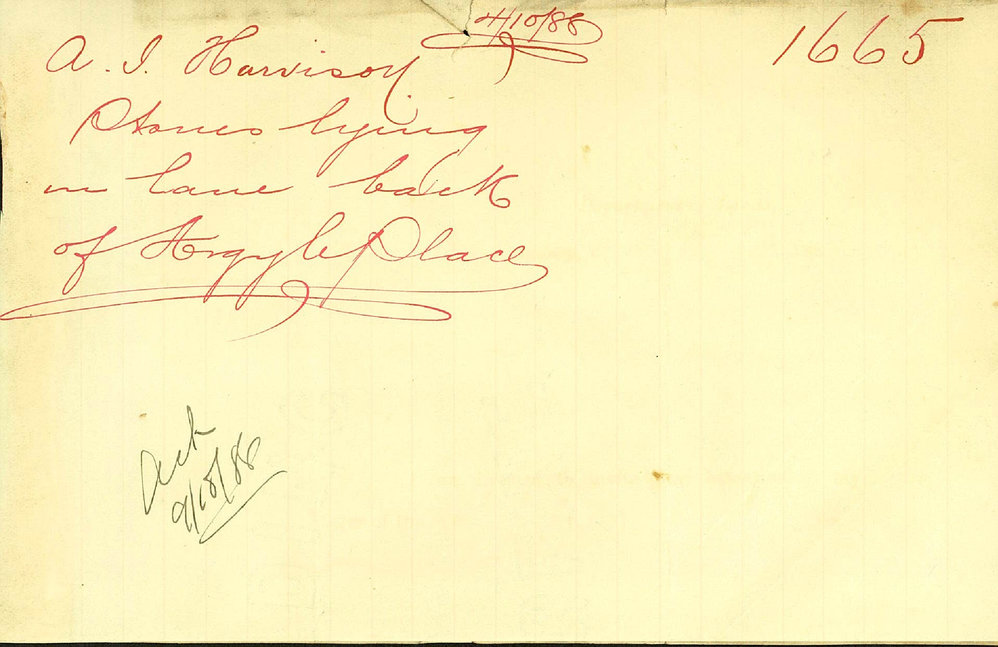 4/10/88
1665
A. I. Harrison
Stones lying
in lane back
of Argyle Place
Ack
9/10/88